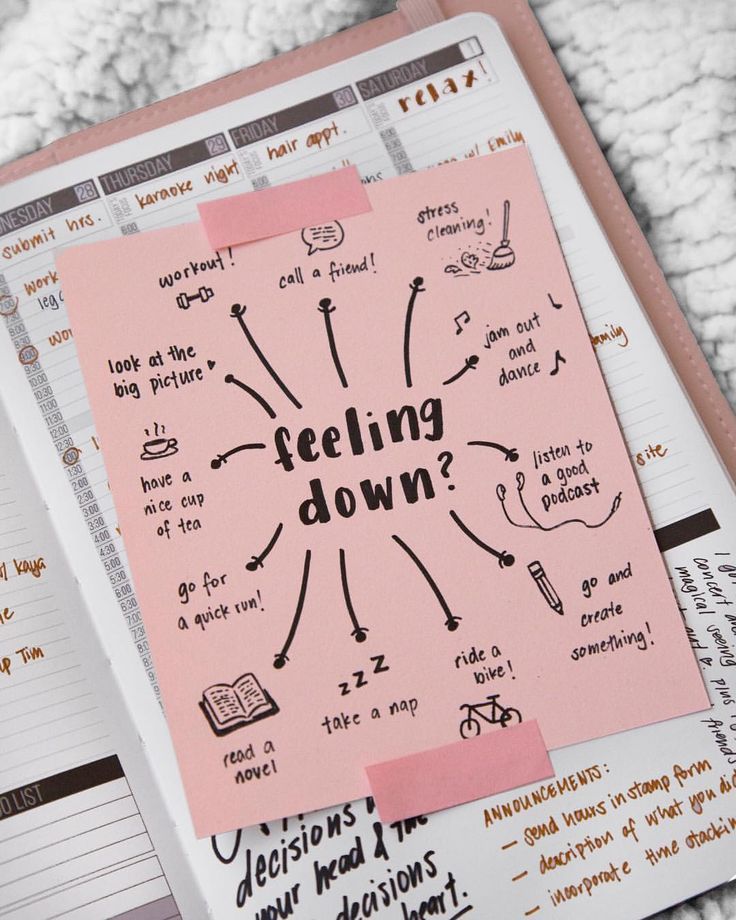 SATURDAY 1
relax!
FRIDAY 30
hair appt.
THURSDAY 29
karaoke night
NESDAY 28
submit hrs.
w/ Emily
work
leg
wo
family
site
workout!
call a friend!
stress
cleaning!
look at the
big picture
jam out
and
dance
feeling
down?
have a
nice cup
of tea
listen to
a good
podcast
go for
a quick run!
go and
create
something!
read a
novel
zzz
take a nap
ride a
bike!
w/ kaya
p Tim
O LIST
I go
concert an
magical seeing
plus
friends
decisions
your head & the
decisions
heart.
ANNOUNCEMENTS:
- send hours in stamp form
- description of what you did
- incorporate time stacking